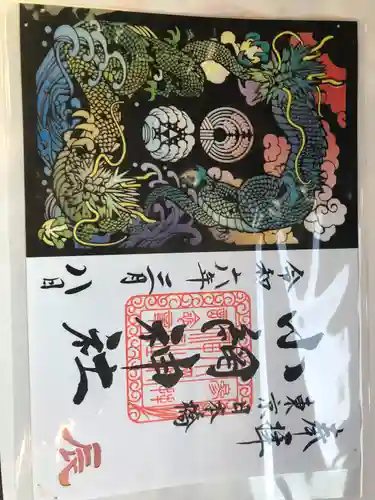 奉拝
東京
日本橋
小網神社
令和六年三月八日
辰